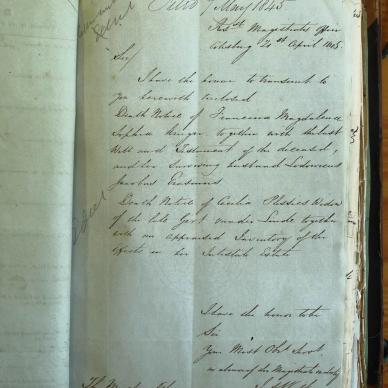 7 May 1845
Resdt Magistrates Office
Colesberg 24th April 1845
Sir
I have the honor to transmit to
you herewith enclosed
Death Notice of Francina Magdalena
Sophia Kruger together with the last
Will and Testament of the deceased,
and her surviving husband Lodewicus
Jacobus Erasmus
Death Notice of Cecilia Plessies Widow
of the late Gert van der Linde together
with an appraised Inventory of the
effects in her Intestate Estate
I have the honor to be
Sir
Your Most Obt Servt
in absence of the Magistrate on duty